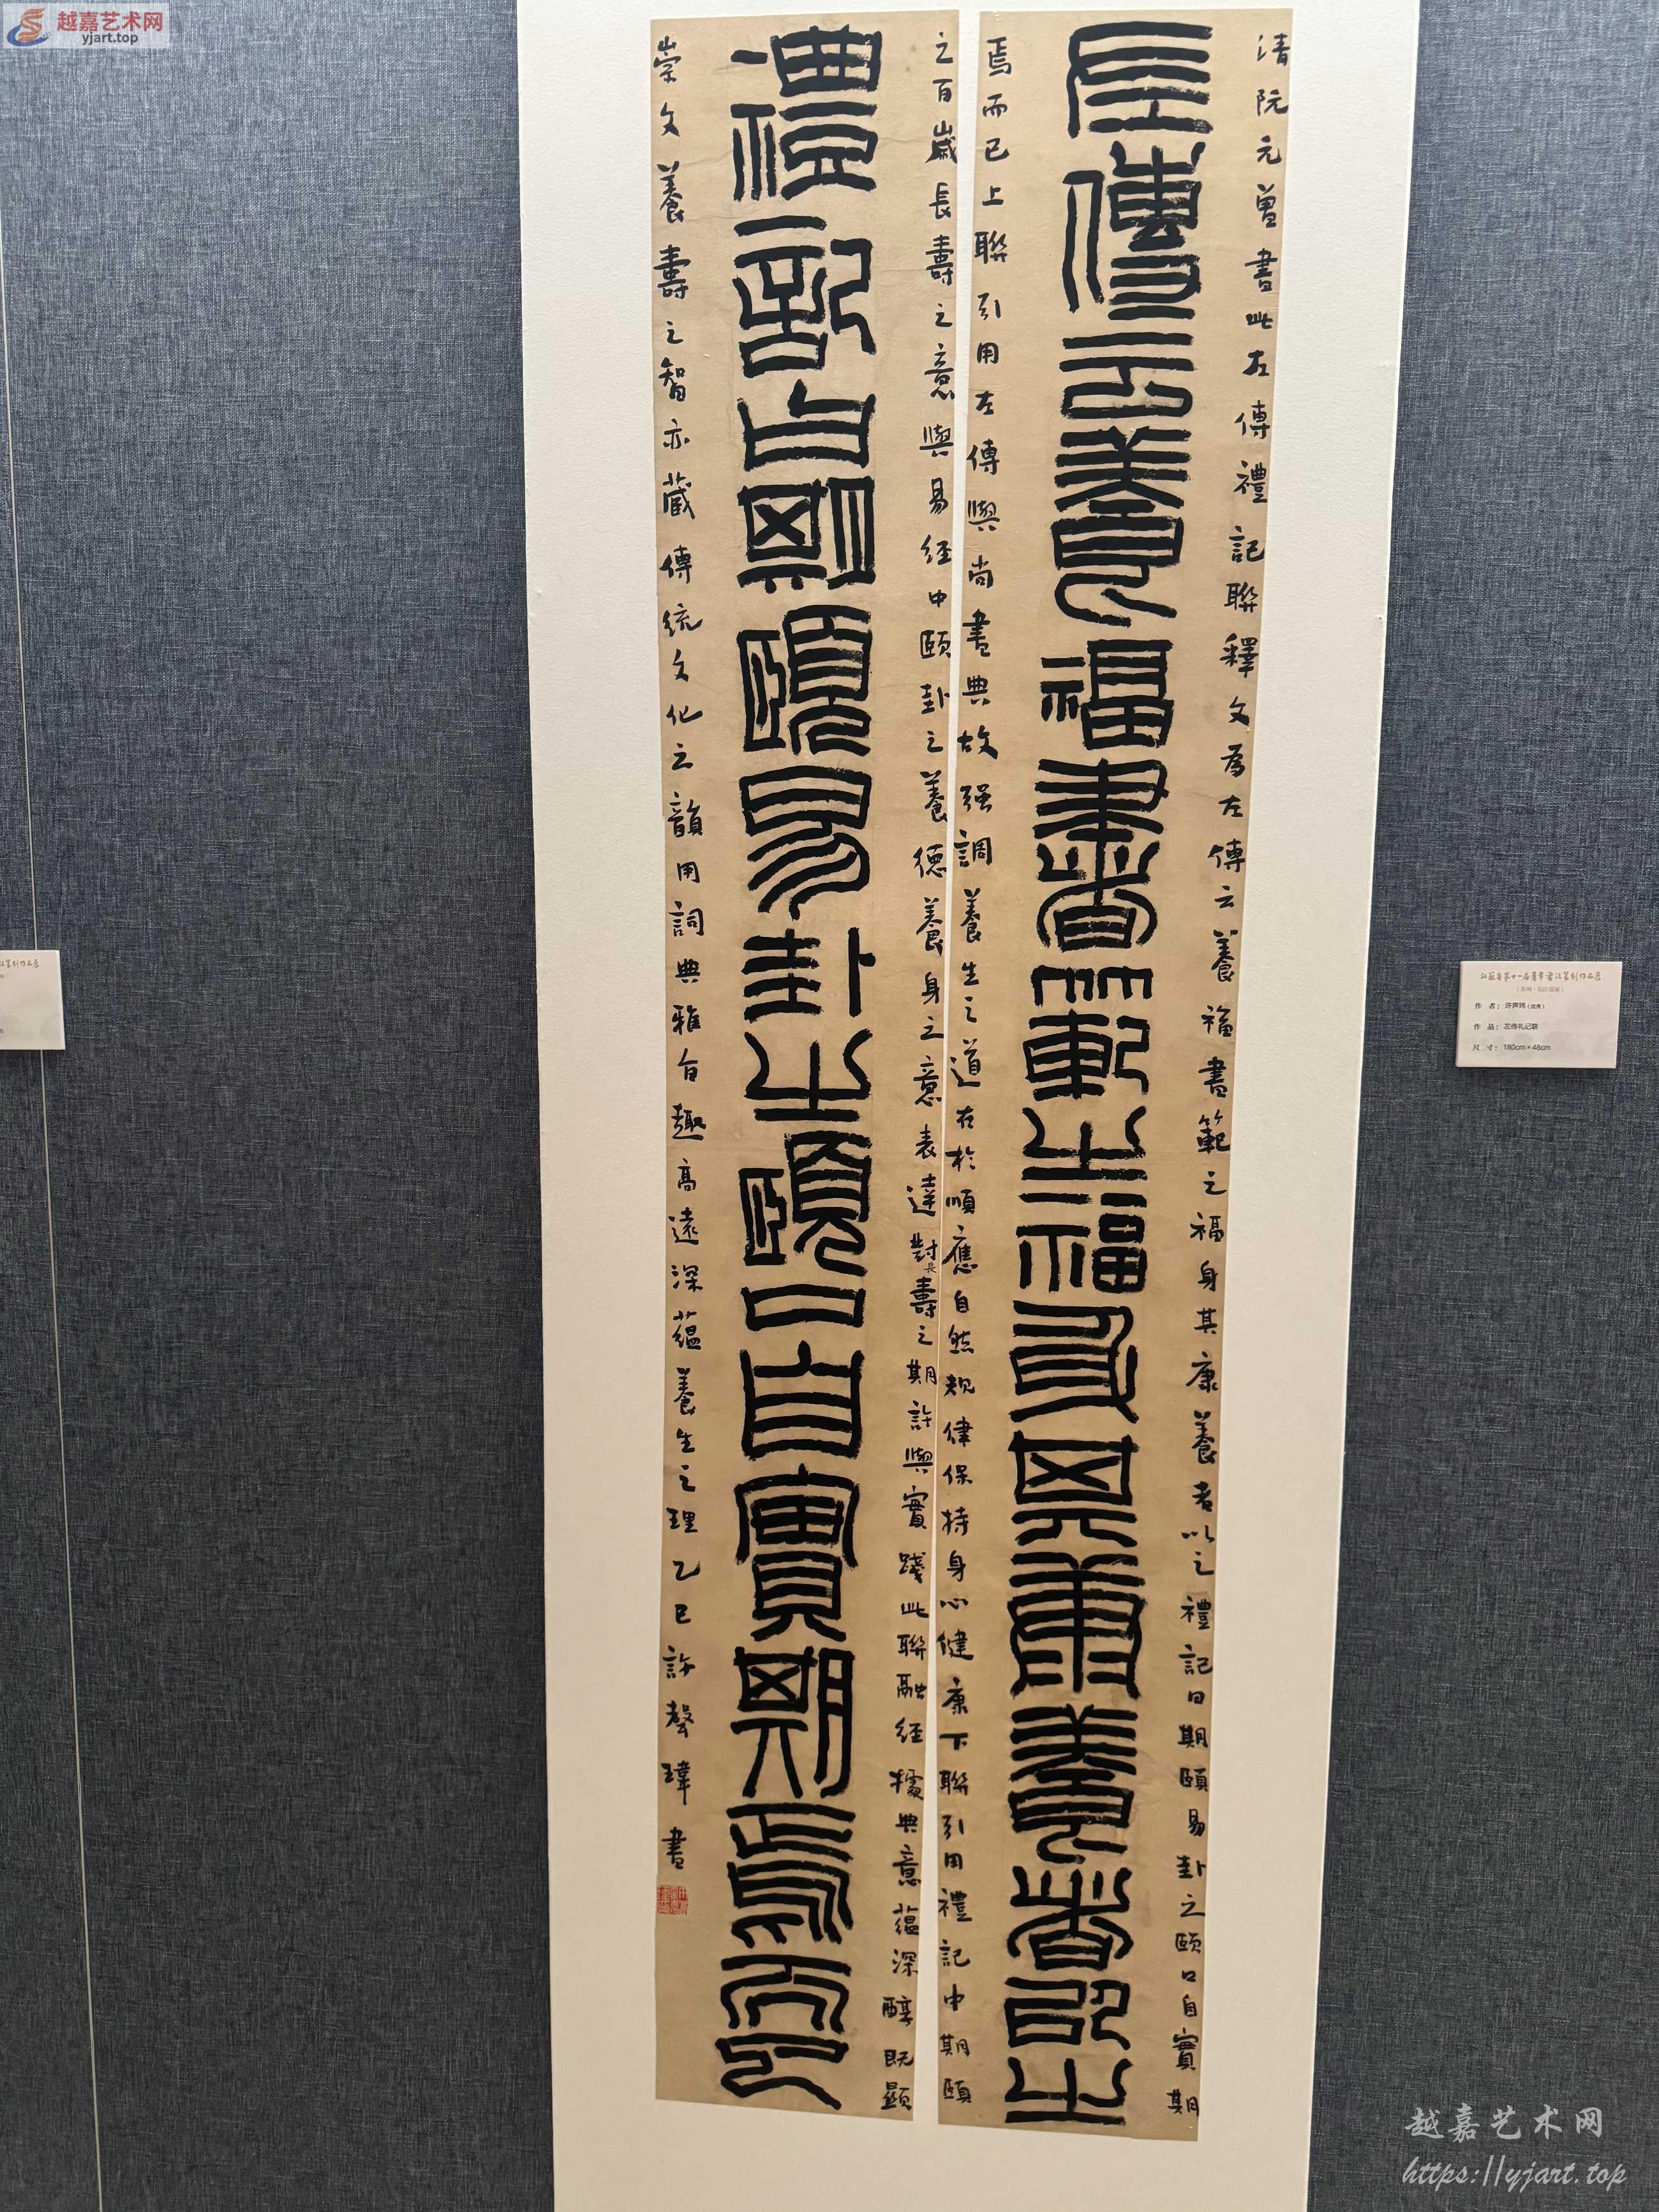 越嘉艺术网
yjart.top
清阮元曾書此左傳禮記聯釋文為左傳云養福書範之福身其康養者以之禮記曰期頤易卦之頤口自實期
左傳云養福書範之福身其康養者以之
焉而已上聯引用左傳與尚書典故强調養生之道在於順應自然规律保持身心健康下聯引用禮記中期頤
之百歲長壽之意與易經中頤卦之養德養身之意表達對長壽之期許與實踐此聯融經據典意蘊深醇既顯
禮記曰期頤易卦之頤口自實期焉而已
崇文養壽之智亦藏傳統文化之韻用詞典雅旨趣高遠深蘊養生之理乙巳許聲瑋書
作 者：许声玮
作 品：左传礼记联
尺 寸：180cm×48cm
越嘉艺术网
https://yjart.top